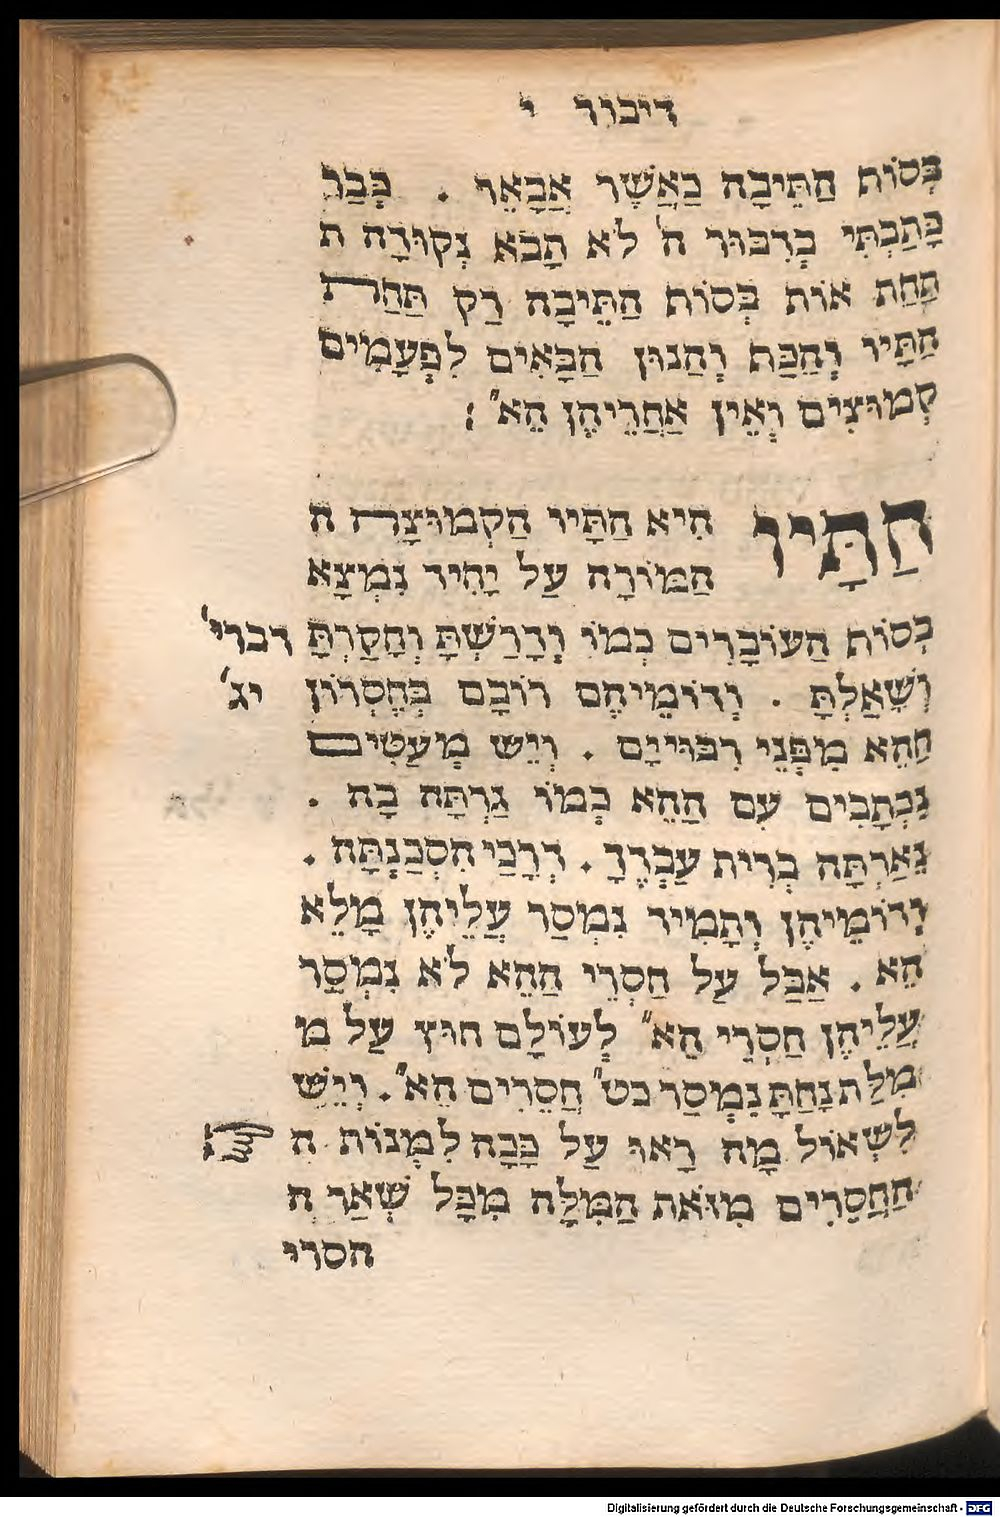 דיבור י
בְּסוֹת הַתֵּיבָה כַּאֲשֶׁר אֲבָאֵר . כְּבָר
כָּתַבְתִּי בְּדִבּוּר ה' לֹא תָבֹא נְקוּדָה ת
תַּחַת אוֹת בְּסוֹת הַתֵּיבָה רַק תַּחַת
הַתָּיו וְהַכַּת וְהַנוּן הַבָּאִים לִפְעָמִים
קְמוּצִים וְאֵין אַחֲרֵיהֶן הֵא" :
הַתָּיו הִיא הַתָּיו הַקְמוּצָה ה
הַמּוֹרָה עַל יָחִיד נִמְצָא
בְּסוֹת הָעוֹבָרִים כְּמוֹ וְדָרַשְׁתָּ וְחָקַרְתָּ דברי'
וְשָׁאַלְתָּ . וְדוֹמֵיהֶם רוּבָּם בְּחֶסְרוֹן יג'
הַהֵא מִפְּנֵי רִבּוּיָים . וְיֵשׁ מְעַטִּים
נִכְתָבִים עִם הַהֵא כְּמוֹ גַרְתָּה בָהּ .
נֵאַרְתָּה בְּרִית עַבְדֶךָ . דְרָכַי הִסְכַנְתָּה .
וְדוֹמֵיהֶן וְתָמִיד נִמְסַר עֲלֵיהֶן מָלֵא
הֵא . אֲבָל עַל חַסְרֵי הַהֵא לֹא נִמְסַר
עֲלֵיהֶן חַסְרֵי הֵא" לְעוֹלָם חוּץ עַל מִ
מִלַּת נָחַתָּ נִמְסַר כט" חֲסֵרִים הֵא" . וְיֵשׁ
לִשְׁאוֹל מָה רָאוּ עַל כָּכָה לִמְנוֹת הַ
הַחֲסֵרִים מִזֹּאת הַמִּלָּה מִכָּל שְׁאַר הַ
חסרי
Digitalisierung gefördert durch die Deutsche Forschungsgemeinschaft - DFG